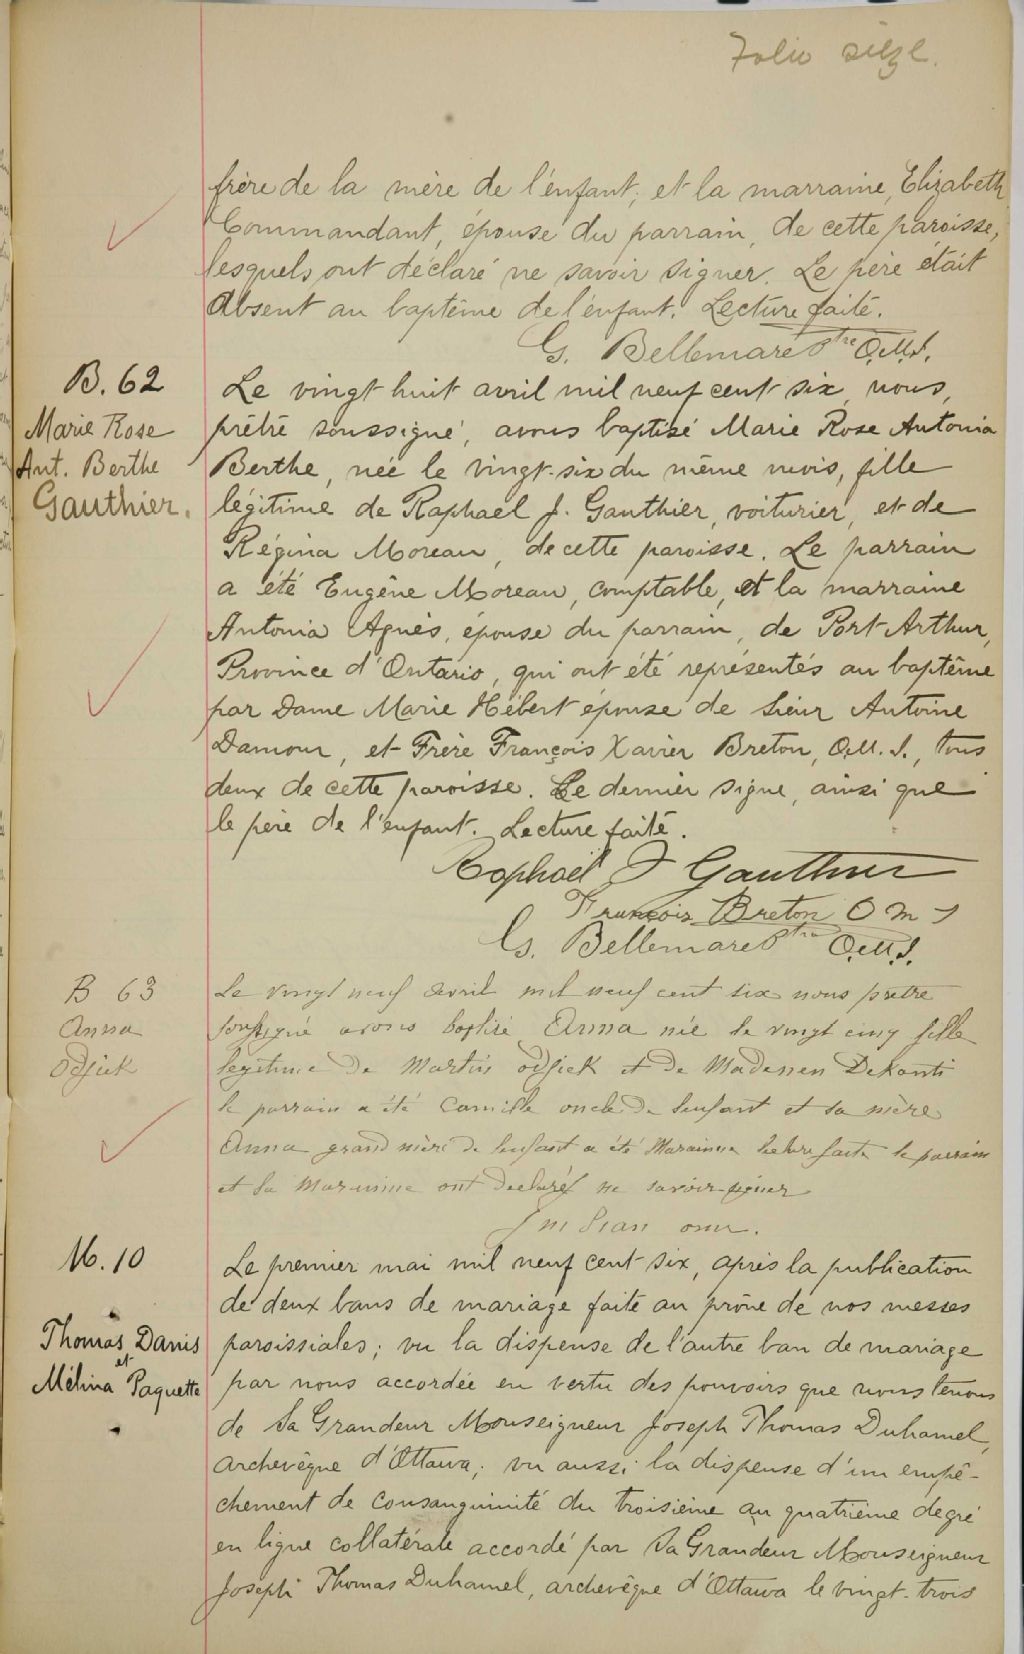 Folio seize.
frère de la mère de l'enfant, et la marraine, Elizabeth
Commandant, épouse du parrain, de cette paroisse,
lesquels ont déclaré ne savoir signer. Le père était
absent au baptême de l'enfant. Lecture faite.
G. Bellemare Ptre O.M.I.
B. 62
Marie Rose
Ant. Berthe
Gauthier.
Le vingt huit avril mil neuf cent six, nous,
prêtre soussigné, avons baptisé Marie Rose Antonia
Berthe, née le vingt-six du même mois, fille
légitime de Raphael J. Gauthier, voiturier, et de
Régina Moreau, de cette paroisse. Le parrain
a été Eugène Moreau, comptable, et la marraine
Antonia Agnès, épouse du parrain, de Port Arthur,
Province d'Ontario, qui ont été représentés au baptême
par Dame Marie Hébert épouse de Sieur Antoine
Damour, et Frère François Xavier Breton, O.M.I., tous
deux de cette paroisse. Le dernier signe, ainsi que
le père de l'enfant. Lecture faite.
Raphael J Gauthier
François Breton O M I
G. Bellemare Ptre O.M.I.
B 63
Anna
Odjick
Le vingt neuf avril mil neuf cent six nous prêtre
soussigné avons baptisé Anna née le vingt cinq fille
legitime de Martin Odjick et de Madenen Dekonti
le parrain a été Camille oncle de lenfant et sa mère
Anna grand mère de lenfant a été Marainne lecture faite le parrain
et la Marainne ont declarés ne savoir signer
omi.
M. 10
Thomas Danis
et
Mélina Paquette
Le premier mai mil neuf cent six, après la publication
de deux bans de mariage faite au prône de nos messes
paroissiales; vu la dispense de l'autre ban de mariage
par nous accordée en vertu des pouvoirs que nous tenons
de Sa Grandeur Monseigneur Joseph Thomas Duhamel,
archevêque d'Ottawa; vu aussi la dispense d'un empê-
chement de consanguinité du troisième au quatrième degré
en ligne collatérale accordé par Sa Grandeur Monseigneur
Joseph Thomas Duhamel, archevêque d'Ottawa le vingt-trois